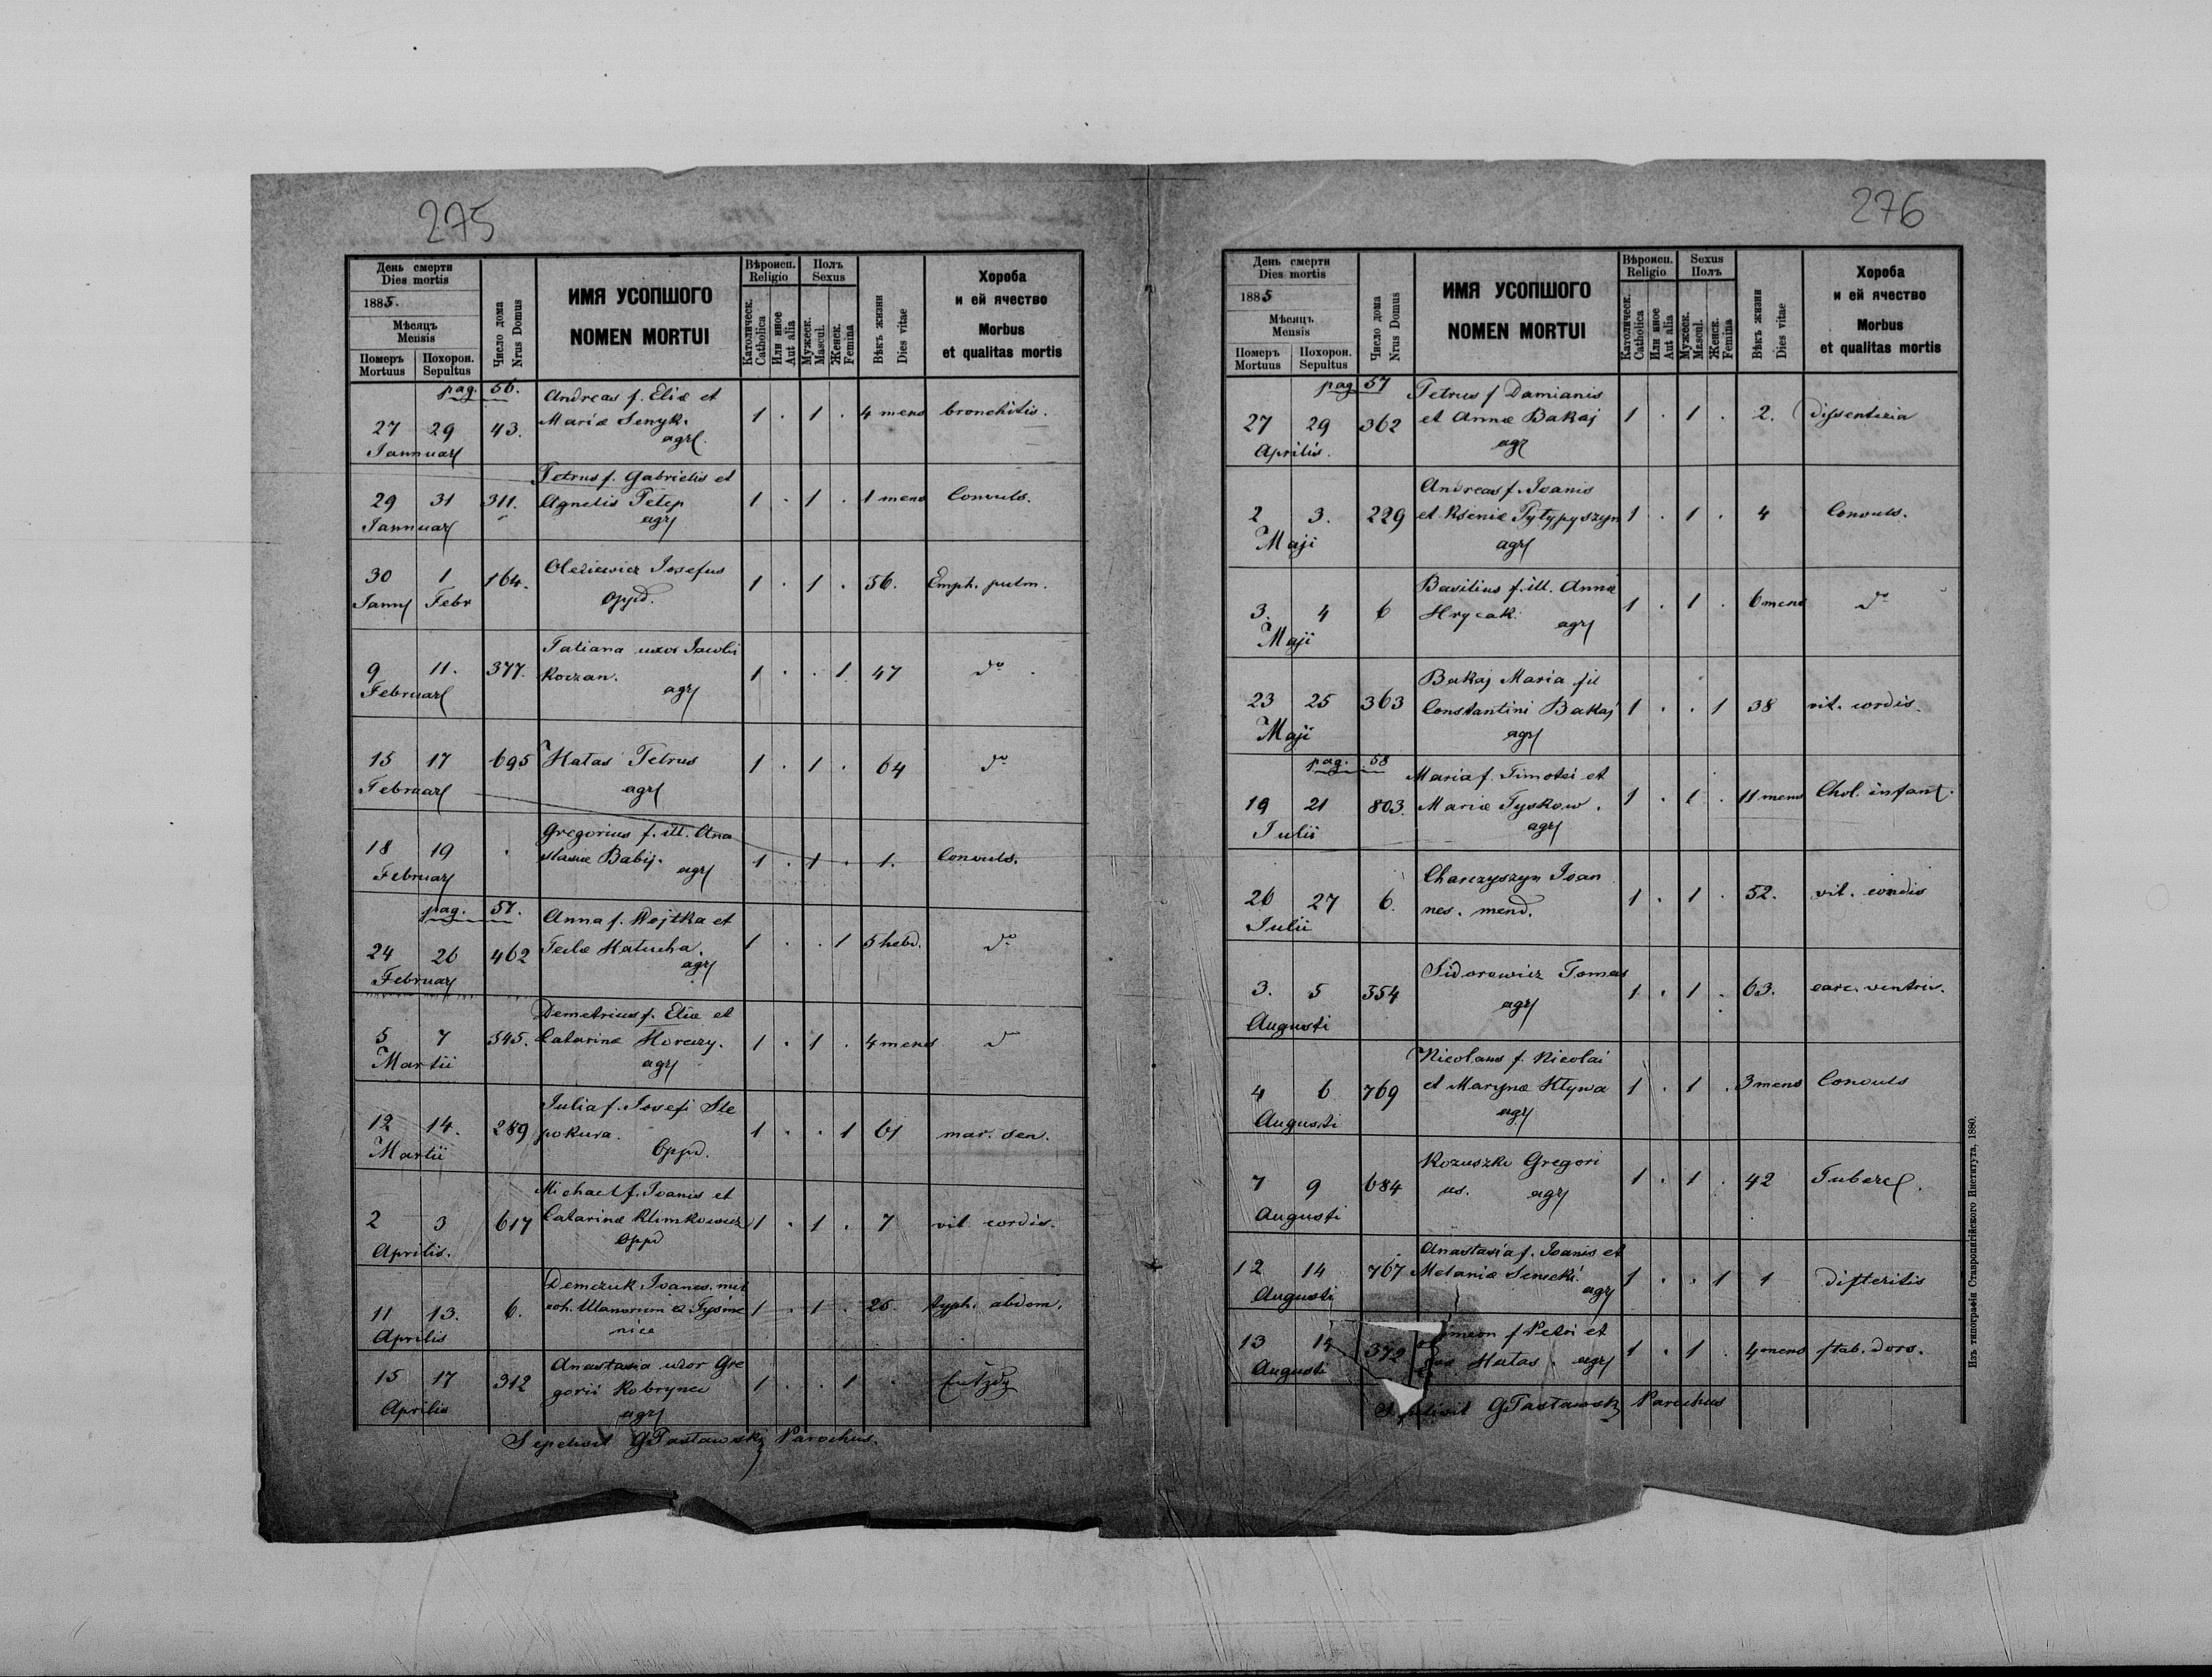 275
День смерти
Dies mortis
1885.
Мѣсяцъ
Mensis
Померъ Mortuus
Похорон. Sepultus
Число дома
Nrus Domus
ИМЯ УСОПШОГО
NOMEN MORTUI
Вѣроисп.
Religio
Католическ.
Catholica
Или иное
Aut alia
Полъ
Sexus
Мужеск.
Mascul.
Женск.
Femina
Вѣкъ жизни
Dies vitae
Хороба
и ей ячество
Morbus
et qualitas mortis
pag. 56.
Andreas f. Eliæ et
27 29 43. Mariæ Senyk. 1 . 1 . 4 mens bronchitis.
Januar agr.
Petrus f. Gabrielis et
29 31 311. Agnetis Petep 1 . 1 . 1 mens Convuls.
Januar agr
30 1 164. Oleziewicz Josefus 1 . 1 . 56. Emph. pulm.
Jann Febr Oppd.
Tatiana uxor Jacobi
9 11. 377. Koczan. 1 . . 1 47 do
Februar agr
15 17 695 Hatas Petrus 1 . 1 . 64 do
Februar agr
Gregorius f. ill. Ana
18 19 . stasiæ Babij. 1 . 1 . 1. Convuls.
Februar agr
pag. 57.
Anna f. Wojtka et
24 26 462 Teclæ Hatucha 1 . . 1 5 hebd. do
Februar agr
Demetrius f. Eliæ et
5 7 545. Catarinæ Horczy. 1 . 1 . 4 mens do
Martii agr
Julia f. Josefi Ste
12 14. 289 pokura. 1 . . 1 61 mar. sen.
Martii Oppd.
Michael f. Joanis et
2 3 617 Catarinæ Klimkowicz 1 . 1 . 7 vit. cordis.
Aprilis. Oppd
Demczuk Joanes.
11 13. 6. coh. Ulanorum e Tysme 1 . 1 . 26. typh. abdom.
Aprilis nice
Anastasia uxor Gre
15 17 312 gorii Kobrynec 1 . . 1 .
Aprilis agr
Sepelivit GPastawsky Parochus.
276
День смерти
Dies mortis
1885
Мѣсяцъ
Mensis
Померъ Mortuus
Похорон. Sepultus
Число дома
Nrus Domus
ИМЯ УСОПШОГО
NOMEN MORTUI
Вѣроисп.
Religio
Католическ.
Catholica
Или иное
Aut alia
Sexus
Полъ
Мужеск.
Mascul.
Женск.
Femina
Вѣкъ жизни
Dies vitae
Хороба
и ей ячество
Morbus
et qualitas mortis
pag 57
Petrus f Damianis
27 29 362 et Annæ Bakaj 1 . 1 . 2. dissenteria
Aprilis. agr
Andreas f. Joanis
2 3. 229 et Kseniæ Pytypyszyn 1 . 1 . 4 Convuls.
Maji agr
Basilius f. ill. Annæ
3. 4 6 Hrycak. 1 . 1 . 6 mens do
Maji agr
Bakaj Maria fil
23 25 363 Constantini Bakaj 1 . . 1 38 vit. cordis.
Maji agr
pag. 58
Maria f. Timotei et
19 21 803. Mariæ Tyskow. 1 . 1 . 11 mens Chol. infant.
Julii agr
Charczyszyn Joan
26 27 6. nes. mend. 1 . 1 . 52. vit. cordis
Julii
Sidorowicz Tomas
3. 5 554 agr 1 . 1 . 63. carc. ventris.
Augusti
Nicolaus f. Nicolai
4 6 769 et Marynæ Hlywa 1 . 1 . 3 mens Convuls
Augusti agr
Kozuszko Gregori
7 9 684 us. agr 1 . 1 . 42 Tubercl.
Augusti
Anastasia f. Joanis et
12 14 767 Melaniæ Senecki. 1 . . 1 1 difteritis
Augusti agr
f Petri et
13 14 372 Hatas. agr 1 . 1 . 4 mens ftab. dors.
Augusti
Sepelivit GPastawsky Parochus
Изъ типографіи Ставропигійского Института, 1880.